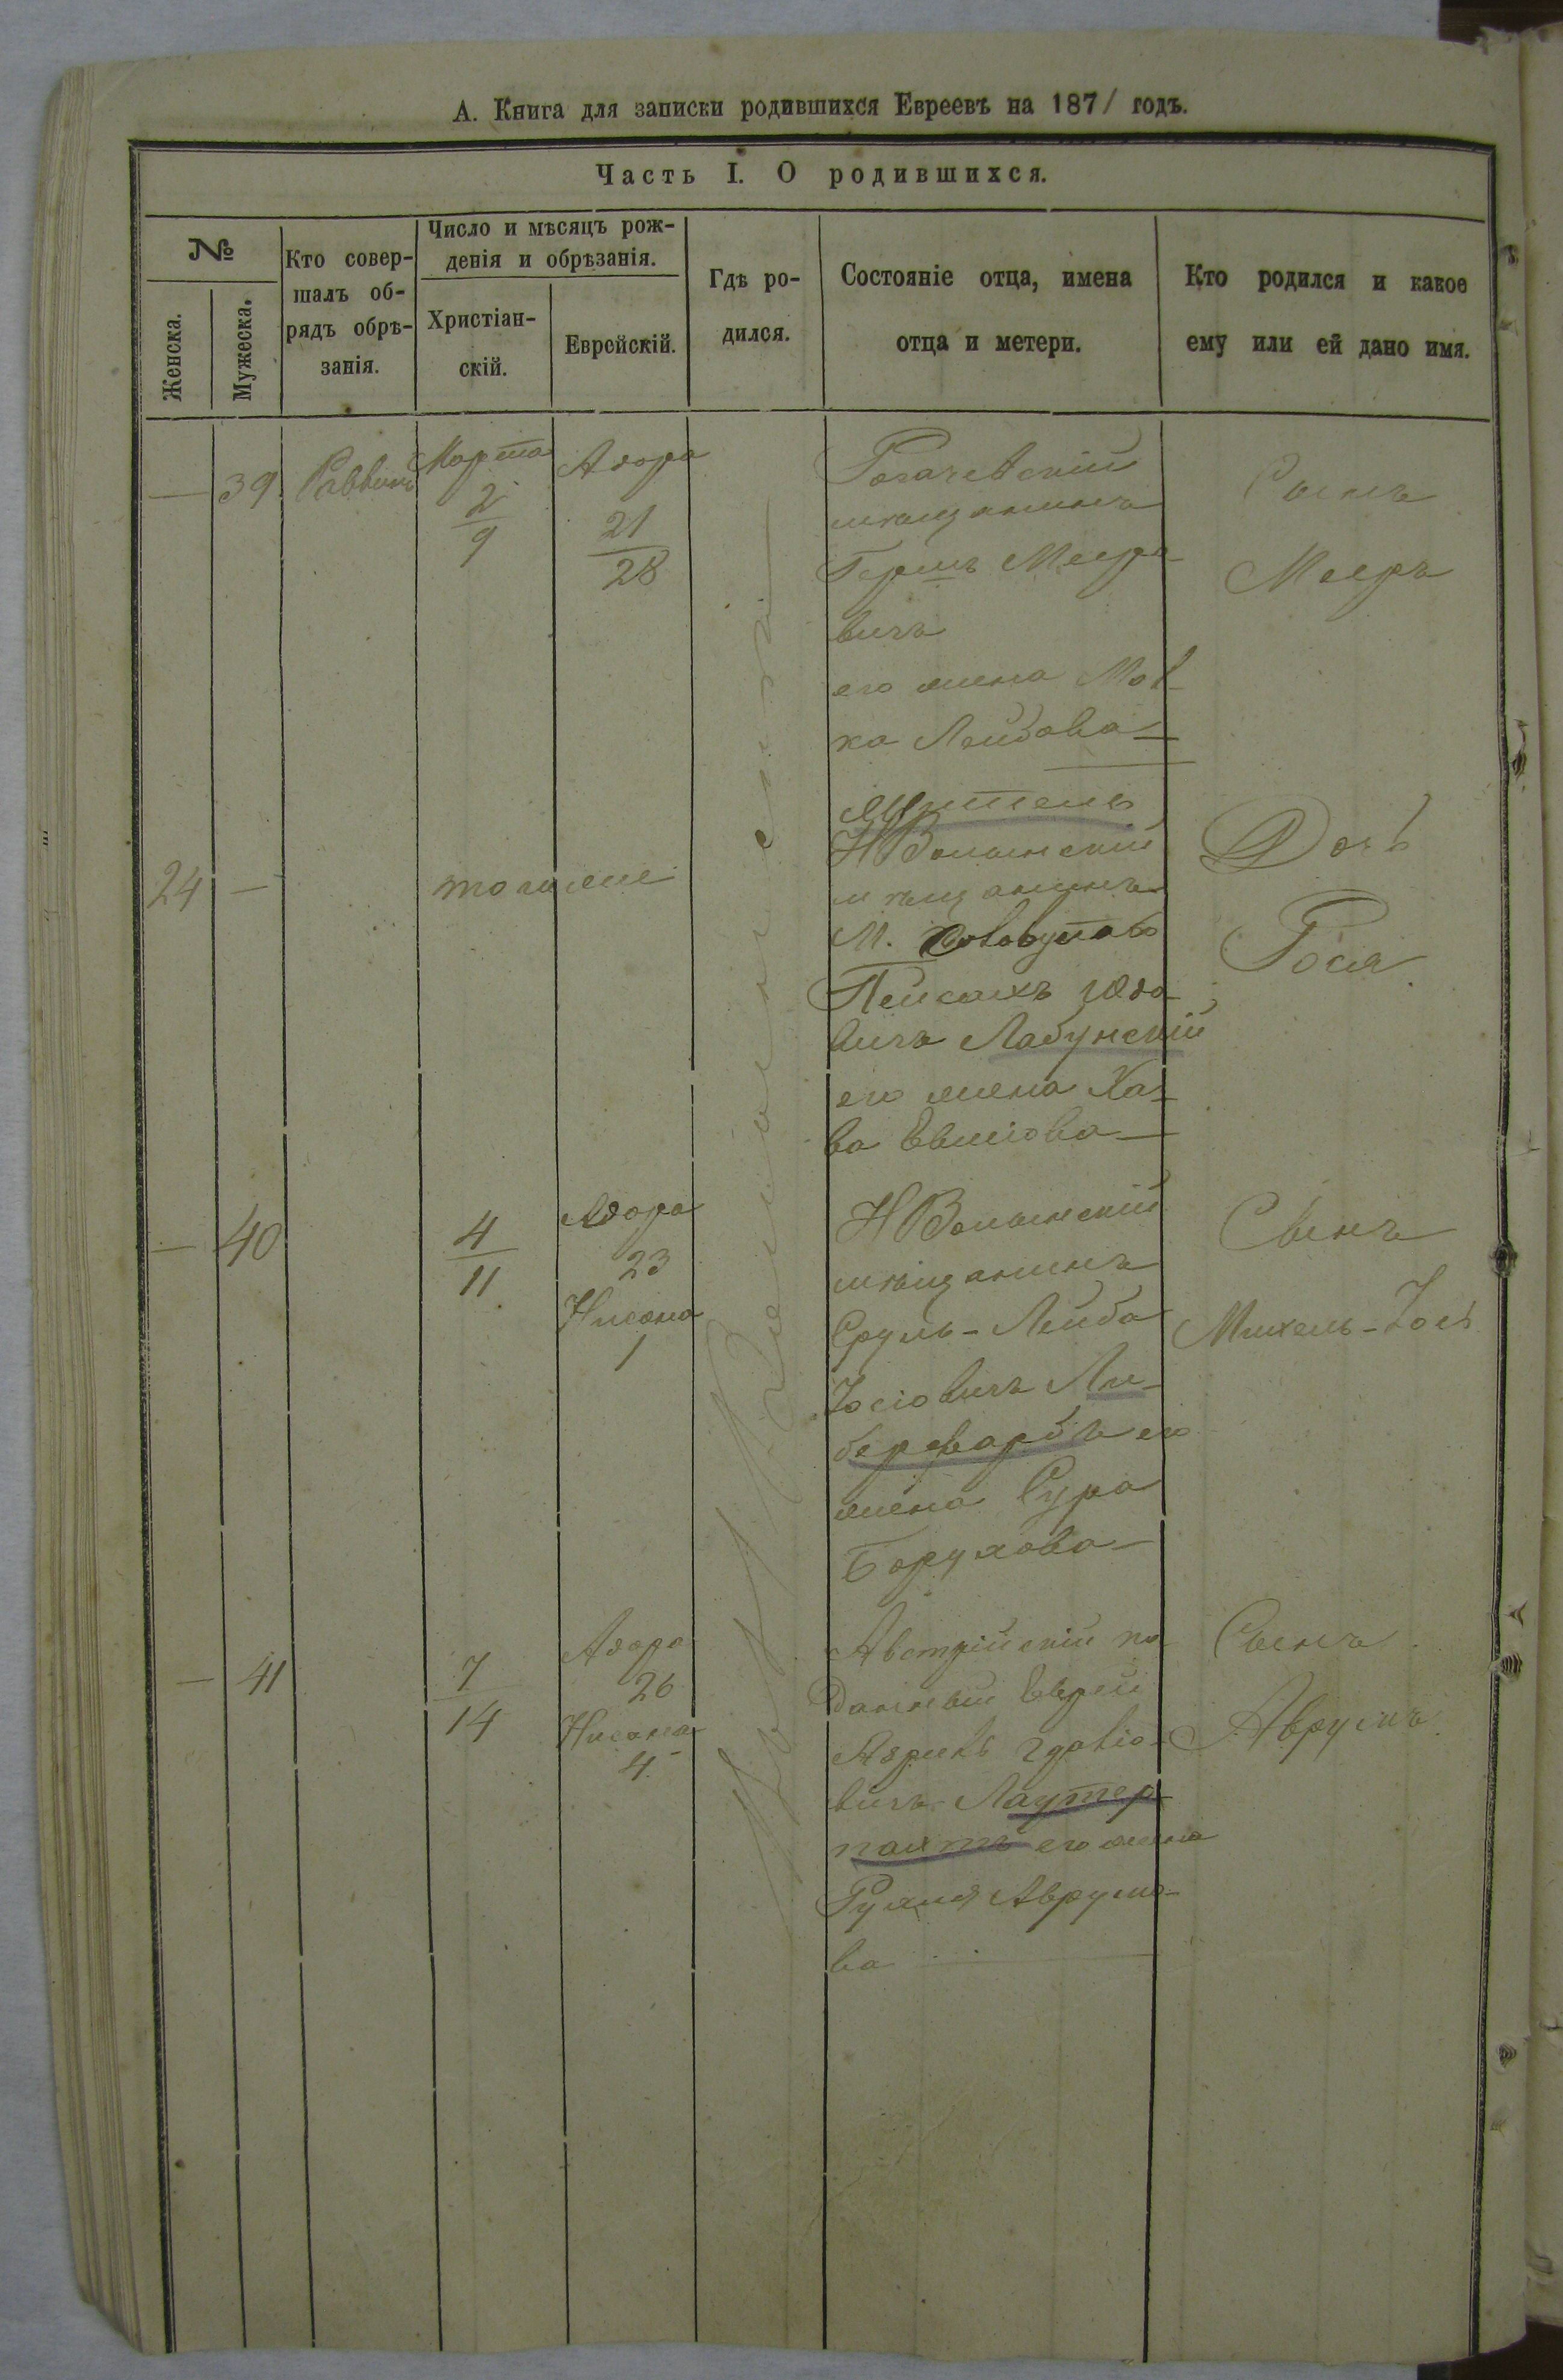 А. Книга для записки родившихся Евреевъ на 187/ годъ.
Часть I. О родившихся.
№
Женска.
Мужеска.
Кто совер-
шалъ об-
рядъ обрѣ-
занія.
Число и мѣсяцъ рож-
денія и обрѣзанія.
Христіан-
скій.
Еврейскій.
Гдѣ ро-
дился.
Состояніе отца, имена
отца и метери.
Кто родился и какое
ему или ей дано имя.
— 39 Раввинъ
Марта
2
9
Адора
21
28
Рогачевскій
мѣщанинъ
Гершъ Меера
вичъ
его жена Мов
ка Лейбова
Сынъ
Мееръ
24 —
тогоже
НВолынскій
мѣщанинъ
М.
Пейсахъ Юдо
вичъ Лабунскій
его жена Ха-
ва
Дочь
Рося
— 40
4
11
Адора
23
Нисана
1
НВолынскій
мѣщанинъ
Сруль-Лейба
Іосіовичъ Ли-
берфарбъ его
жена Сура
Борухова
Сынъ
Михель-Іось
— 41
7
14
Адора
26
Нисана
4
Австрійскій по
данный Еврей
вичъ Лаутер
пахтъ его жена
Рухля Аврумо-
ва
Сынъ
Аврумъ